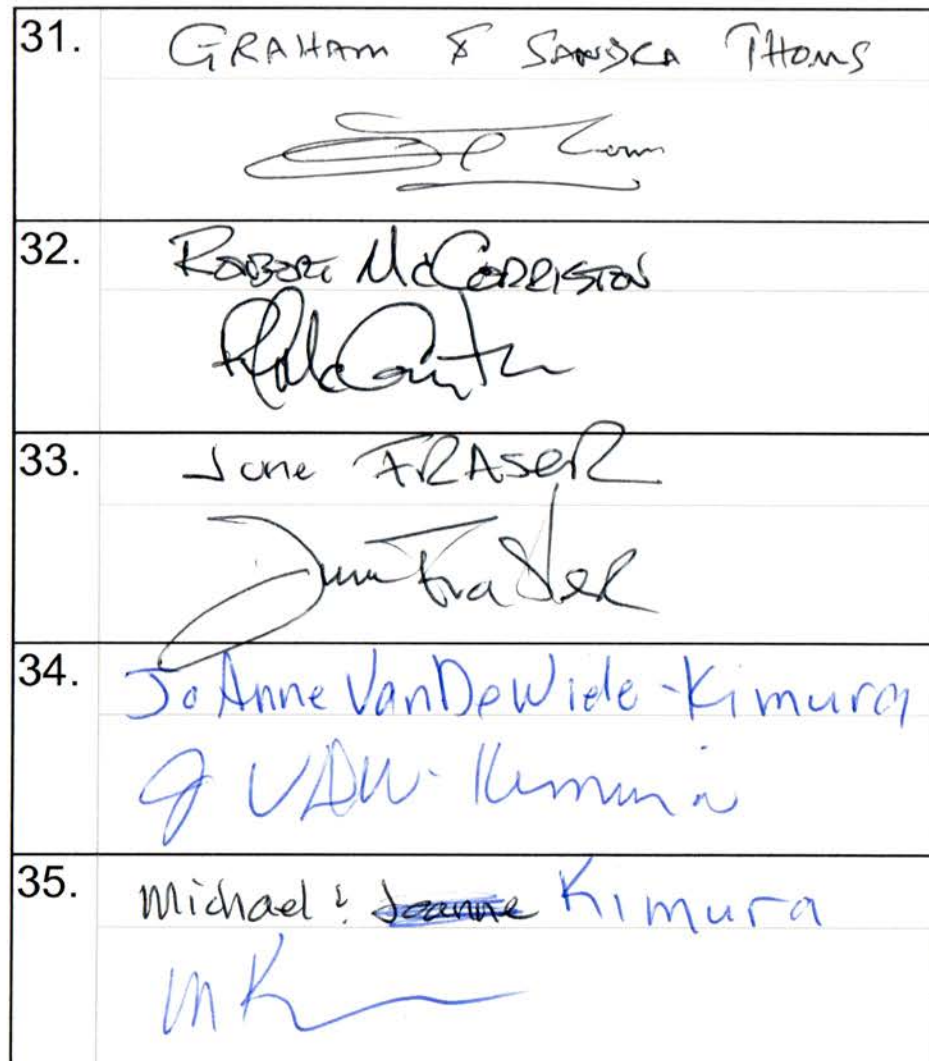 31. GRAHAM & SANDRA THOMS
32. ROBERT McCORRISTON
33. June FRASER
June Fraser
34. JoAnne VanDeWiele-Kimura
J VDW-Kimura
35. Michael & Joanne Kimura
MK